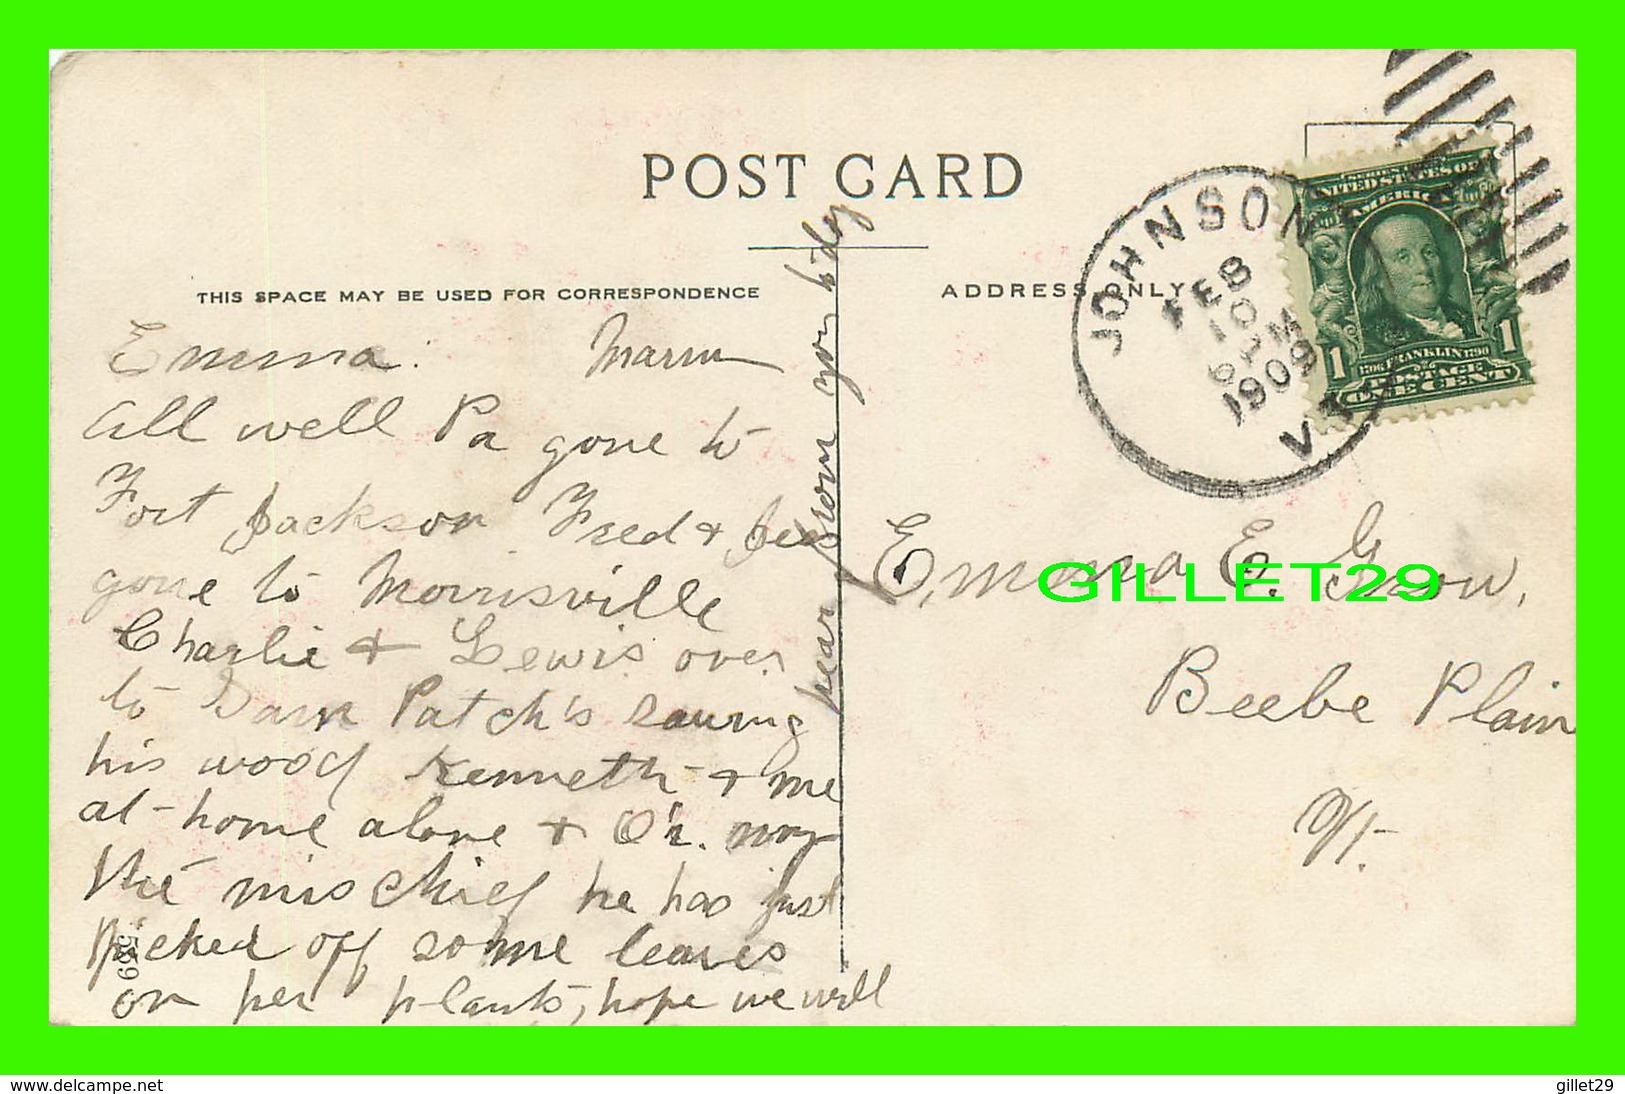 POST CARD
THIS SPACE MAY BE USED FOR CORRESPONDENCE
ADDRESS ONLY
JOHNSON
FEB
10
M
1909
VT.
SERIES
UNITED STATES OF
AMERICA
FRANKLIN 1790
POSTAGE
1 ONE CENT 1
Emma:
All well Pa gone to
Fort Jackson Fred +
gone to Morrisville
Charlie + Lewis over
to Sam Patch's sawing
his wood Kenneth + me
at home alone + O'h. my
the mischief he has just
picked off some leaves
on her plants, hope we will
hear from you today
Emma E. Grow,
Beebe Plain
Vt.
GILLET29
delcampe.net
gillet29